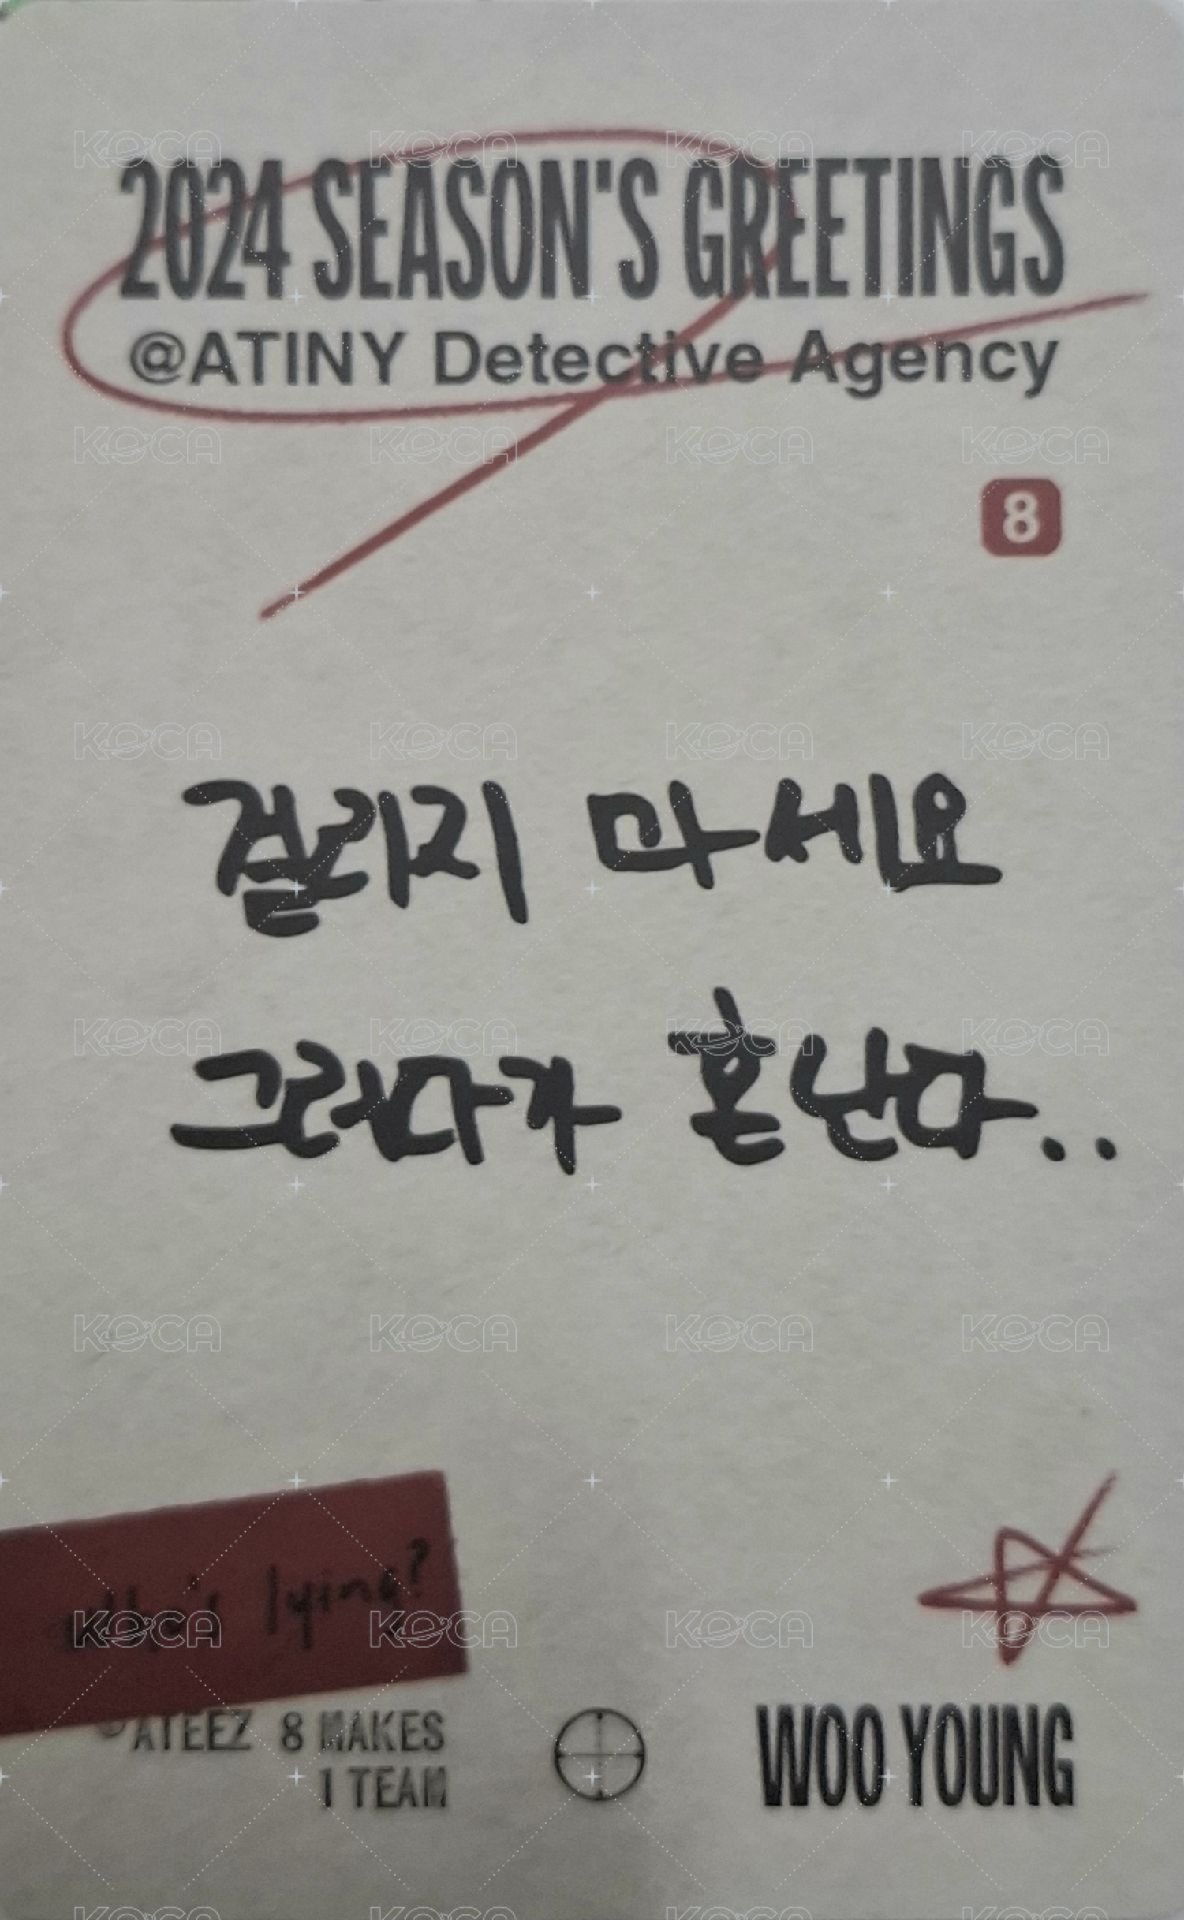 2024 SEASON'S GREETINGS
@ATINY Detective Agency
8
걸리지 마세요
그러다가 혼난다..
Who's lying?
©ATEEZ 8 MAKES
1 TEAM
WOO YOUNG
KOCA